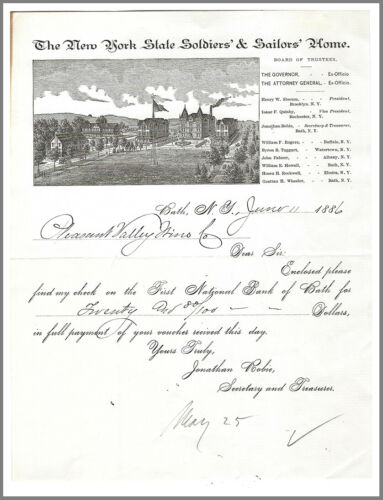 The New York State Soldiers' & Sailors' Home.
BOARD OF TRUSTEES.
THE GOVERNOR, - - Ex-Officio.
THE ATTORNEY GENERAL, - Ex-Officio.
Henry W. Slocum, - - President,
Brooklyn, N. Y.
Isaac F. Quinby, Vice President,
Rochester, N. Y.
Jonathan Robie, - Secretary & Treasurer,
Bath, N. Y.
William F. Rogers, - Buffalo, N. Y.
Byron B. Taggart, Watertown, N. Y.
John Palmer, - Albany, N. Y.
William E. Howell, - Bath, N. Y.
Hosea H. Rockwell, - Elmira, N. Y.
H. Wheeler, - Bath, N. Y.
Bath, N. Y., June 11 1886
Pleasant Valley Wine Co
Dear Sir:
Enclosed please
find my check on the First National Bank of Bath for
Twenty and /100 - - Dollars,
in full payment of your voucher recived this day.
Yours Truly,
Jonathan Robie,
Secretary and Treasurer.
May 25